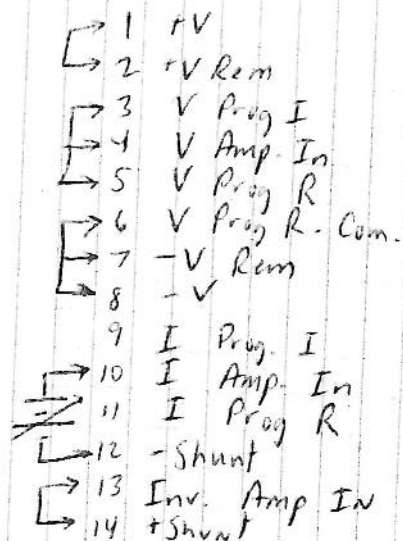 1 +V
2 +V Rem
3 V Prog I
4 V Amp. In
5 V Prog R
6 V Prog R. Com.
7 -V Rem
8 -V
9 I Prog. I
10 I Amp. In
11 I Prog R
12 -Shunt
13 Inv. Amp IN
14 +Shunt